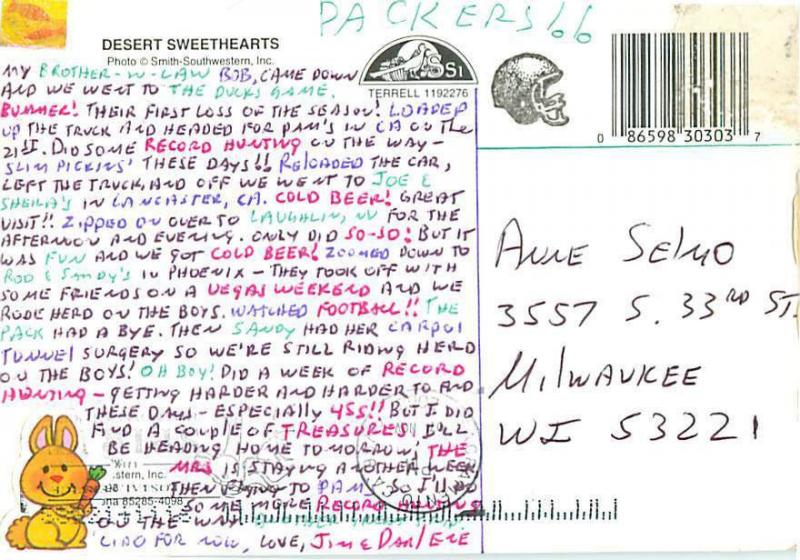 PACKERS!
DESERT SWEETHEARTS
Photo © Smith-Southwestern, Inc.
SSI
TERRELL 1192276
0 86598 30303 7
MY BROTHER-N-LAW BOB, CAME DOWN
AND WE WENT TO THE DUCKS GAME.
BUMMER! THEIR FIRST LOSS OF THE SEASON! LOADED
UP THE TRUCK AND HEADED FOR PAM'S IN CA ON THE
21ST. DID SOME RECORD HUNTING ON THE WAY–
SLIM PICKINS' THESE DAYS!! RELOADED THE CAR,
LEFT THE TRUCK, AND OFF WE WENT TO JOE &
SHEILA'S IN LANCASTER, CA. COLD BEER! GREAT
VISIT!! ZIPPED ON OVER TO LAUGHLIN, NV FOR THE
AFTERNOON AND EVENING. ONLY DID SO-SO! BUT IT
WAS FUN AND WE GOT COLD BEER! ZOOMED DOWN TO
ROD & SANDY'S IN PHOENIX – THEY TOOK OFF WITH
SOME FRIENDS ON A VEGAS WEEKEND AND WE
RODE HERD ON THE BOYS. WATCHED FOOTBALL!! THE
PACK HAD A BYE. THEN SANDY HAD HER CARPOL
TUNNEL SURGERY SO WE'RE STILL RIDING HERD
ON THE BOYS! OH BOY! DID A WEEK OF RECORD
HUNTING – GETTING HARDER AND HARDER TO FIND
THESE DAYS – ESPECIALLY 45S!! BUT I DID
FIND A COUPLE OF TREASURES. I'LL
BE HEADING HOME TOMORROW; THE
MRS IS STAYING ANOTHER WEEK
THEN FLYING TO PAM'S. SO I'LL DO
SOME MORE RECORD HUNTING
ON THE WAY
'CIAO FOR NOW, LOVE, JIM & DARLENE
stern, Inc.
na 85285-4098
ANNE SELMO
3557 S. 33RD ST.
MILWAUKEE
WI 53221